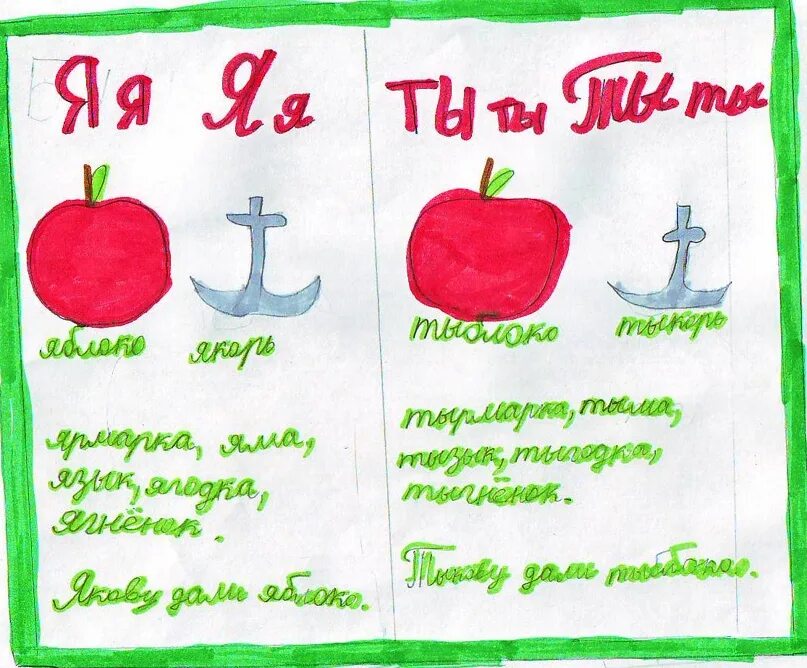 Я я Я я
яблоко якорь
ярмарка, яма,
язык, ягодка,
ягнёнок.
Якову дали яблоко.
ТЫ ты Ты ты
тыблоко тыкорь
тырмарка, тыма,
тызык, тыгодка,
тыгнёнок.
Тыкову дали